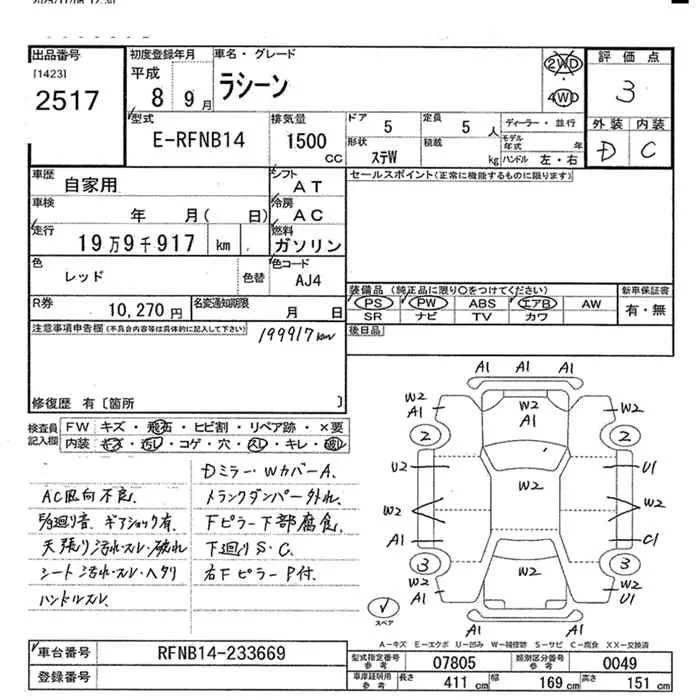 出品番号
[1423]
2517
初度登録年月
平成 8 9月
車名・グレード
ラシーン
2WD
4WD
評価点
3
外装 内装
D C
型式
E-RFNB14
排気量
1500
CC
ドア
5
定員
5 人
ディーラー・並行
形状
ステW
積載
kg
モデル年式 年
ハンドル 左・右
車歴
自家用
シフト
AT
セールスポイント(正常に機能するものに限ります)
車検
年 月( 日)
冷房
AC
走行
19万9千917 km
燃料
ガソリン
色
レッド
色替
色コード
AJ4
装備品 (純正品に限り○をつけてください)
PS PW ABS エアB AW
SR ナビ TV カワ
新車保証書
有・無
R券
10,270 円
名変通知期限
月 日
後日品
注意事項申告欄(不具合内容等は具体的に記入して下さい)
199917km
修復歴 有〔箇所 〕
検査員記入欄
FW キズ・飛石・ヒビ割・リペア跡・×要
内装 キズ・汚レ・コゲ・穴・スレ・キレ・破レ
Dミラー・WカバーA.
AC風向不良.
トランクダンパー外れ.
ギアショック有.
下ピラー下部腐食.
天張り汚れ・スレ・破れ
下廻りS・C.
シート汚れ・スレ・ヘタリ
右Fピラー P付.
ハンドルスレ
A1 A1 A1
W2 A1
W2 A1
W2 A1
2 2
U2
U1
W2
W2
W2
A1
C1
3 3
W2
W2 A1
W2 U1
スペア
A1 A1 A1
A-キズ E-エクボ U-凹み W-補修跡 S-サビ C-腐食 XX-交換済
車台番号
RFNB14-233669
登録番号
型式指定番号 参考
07805
類別区分番号 参考
0049
車庫証明用 参考
長さ
411 cm
幅
169 cm
高さ
151 cm